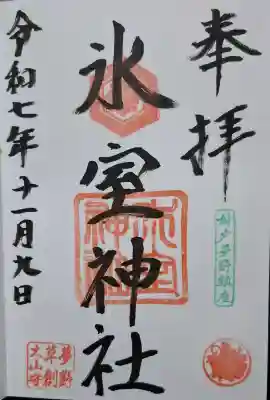 奉拝
神戸夢野鎮座
氷室神社
氷室神社
令和七年十一月九日
夢野
草創
大山咋